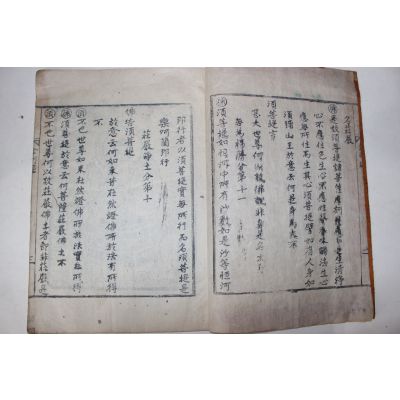 名莊嚴
佛是故須菩提諸菩薩摩訶薩應如是生清淨
心不應住色生心不應住聲香味觸法生心
應無所住而生其心須菩提譬如有人身如
須彌山王於意云何是身爲大不
須菩提言
甚大世尊何以故佛說非身是名大身
無爲福勝分第十一
佛須菩提如恒河中所有沙數如是沙等恒河
那行者以須菩提實無所行而名須菩提是
樂阿蘭那行
莊嚴淨土分第十
佛告須菩提
於意云何如來昔在然燈佛所於法有所得
不
不也世尊如來在然燈佛所於法實無所得
佛須菩提於意云何菩薩莊嚴佛土不
不也世尊何以故莊嚴佛土者即非莊嚴是